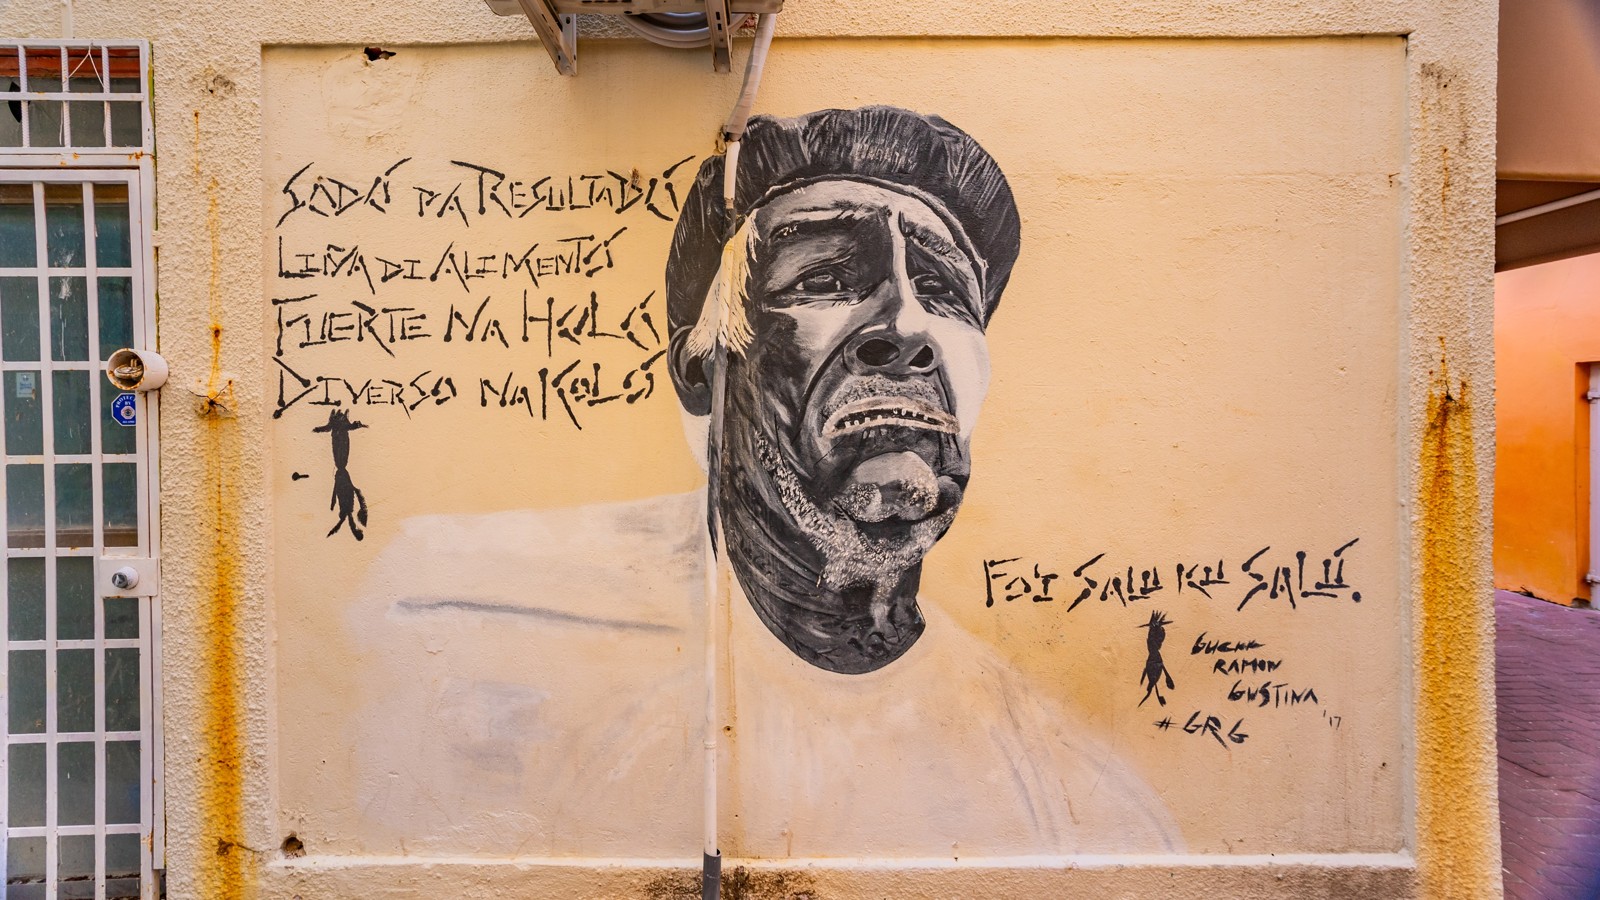 SODÓ PA RESULTADÓ
LIÑA DI ALIMENTÓ
FUERTE NA HOLÓ
DIVERSO NA KOLÓ
FO'I SALU KU SALÚ.
RAMON
GUSTINA
'17
#GRG